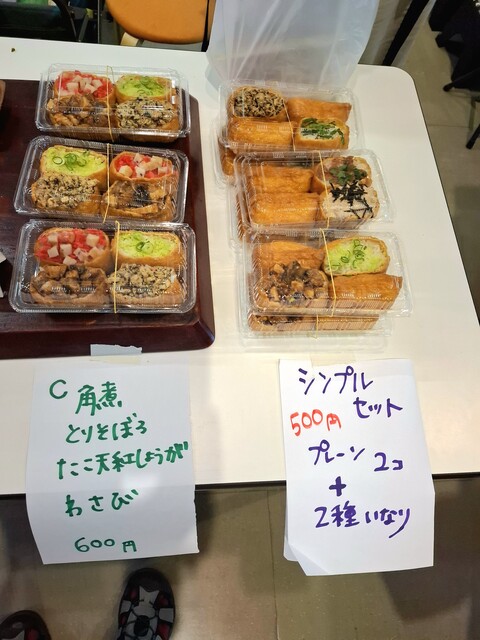 C 角煮
とりそぼろ
たこ天紅しょうが
わさび
600円
シンプル
セット
500円
プレーン 2コ
+
2種いなり